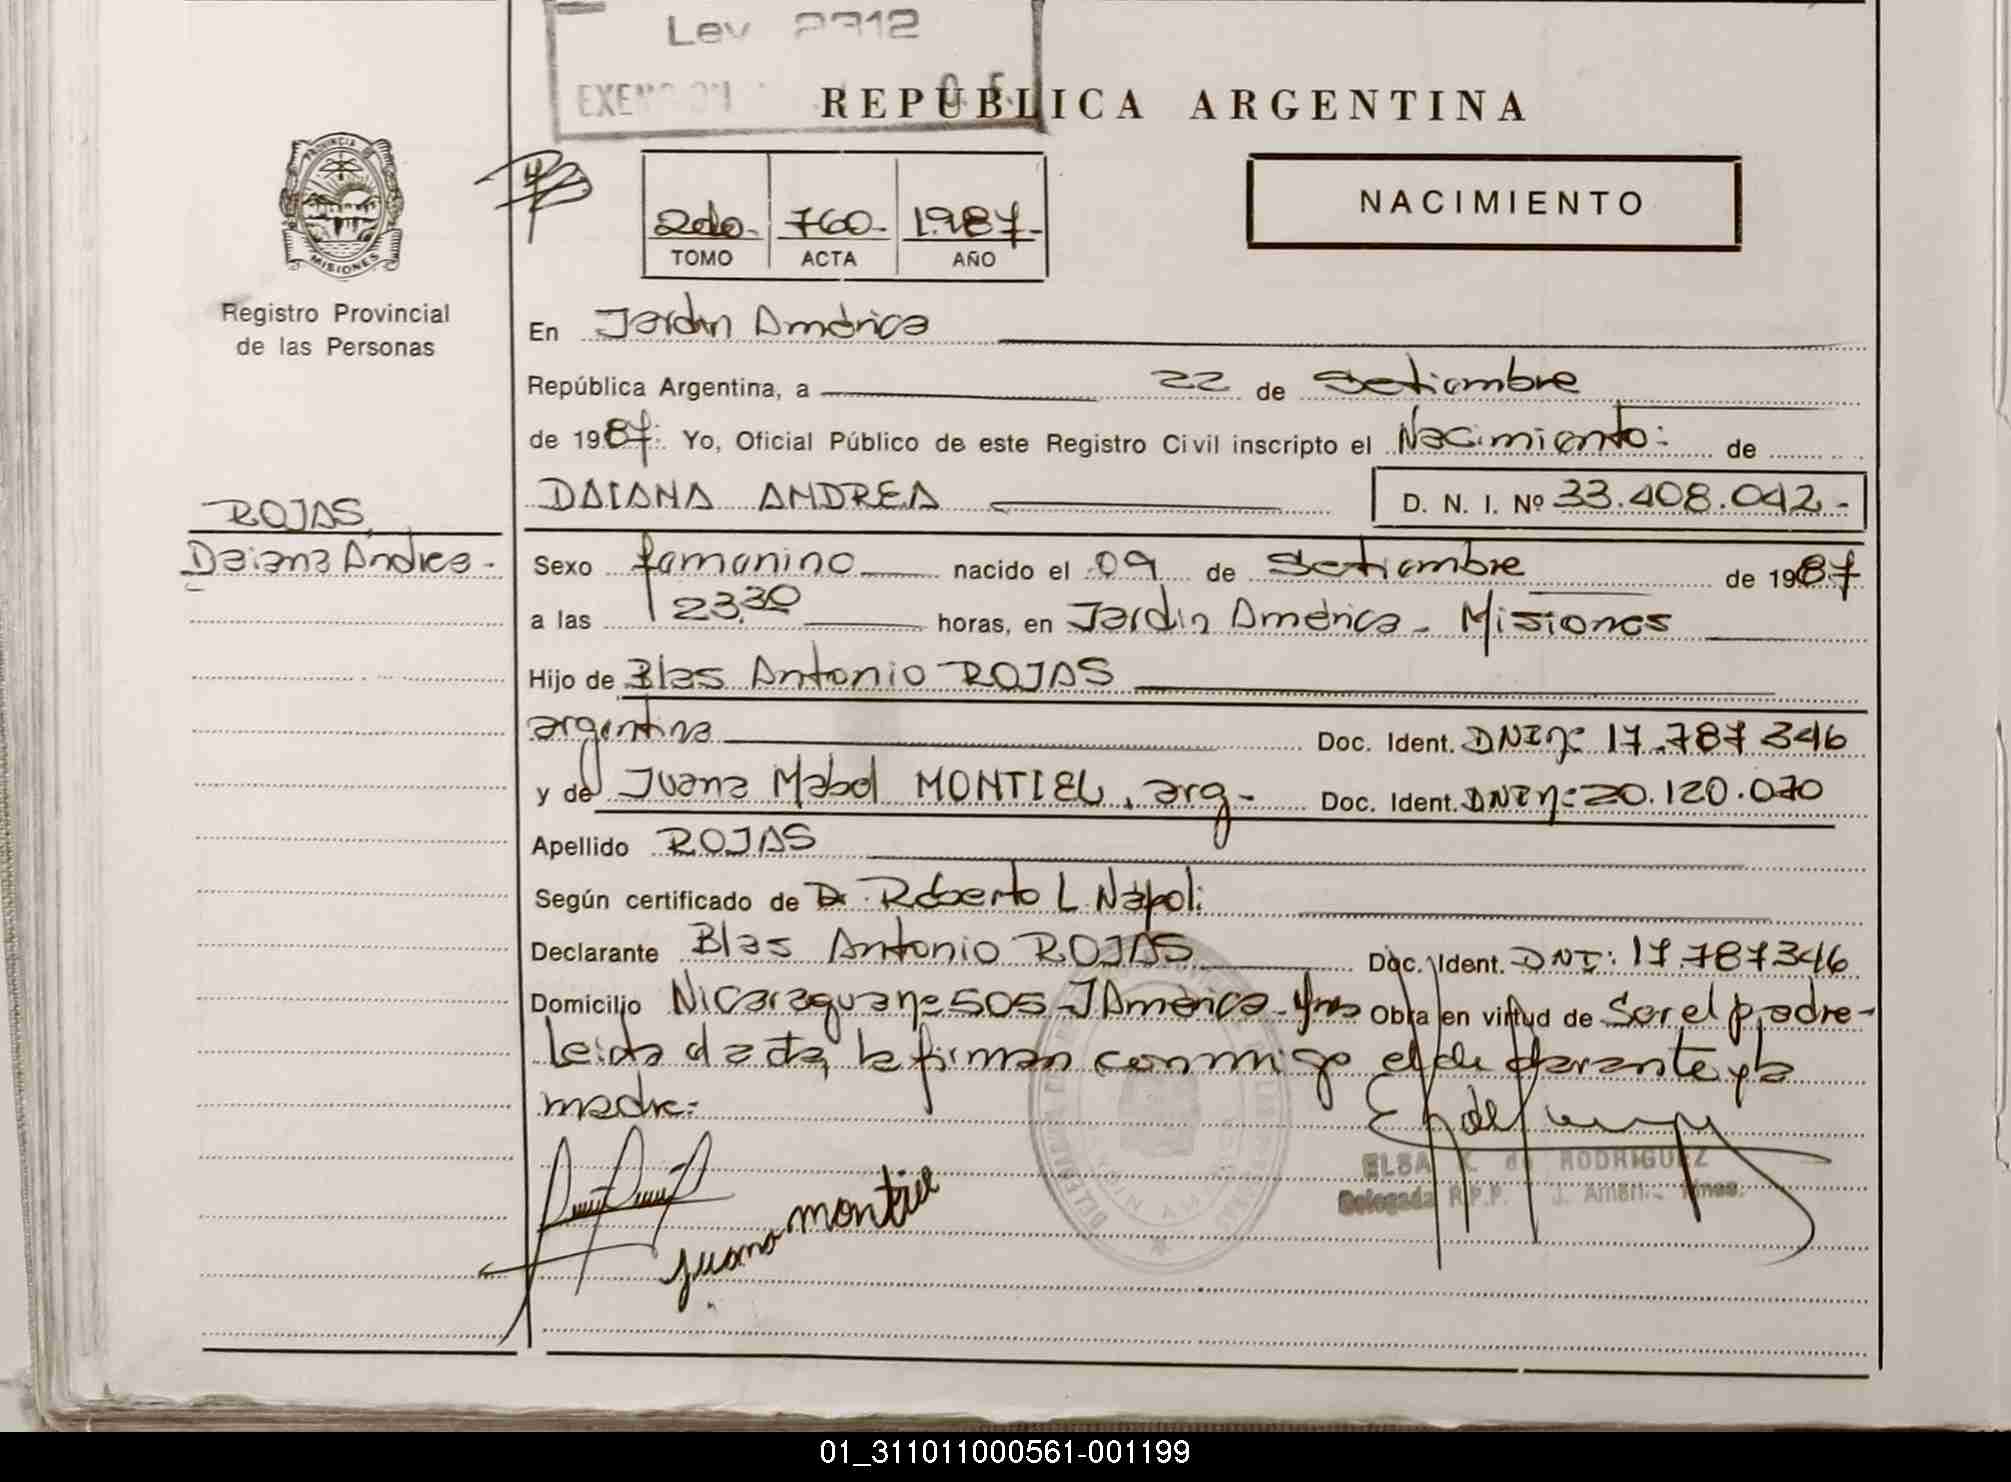 Ley 2312
EXENCION
REPUBLICA ARGENTINA
PROVINCIA DE
MISIONES
2do- 760- 1.987-
TOMO ACTA AÑO
NACIMIENTO
Registro Provincial
de las Personas
En Jardin América
República Argentina, a 22 de Setiembre
de 1987: Yo, Oficial Público de este Registro Civil inscripto el Nacimiento: de
DAIANA ANDREA D. N. I. Nº 33.408.042-
ROJAS,
Daiana Andrea-
Sexo femenino nacido el 09 de Setiembre de 1987
a las 23,30 horas, en Jardin América - Misiones
Hijo de Blas Antonio ROJAS
argentina Doc. Ident. DNI nº 17.787 346
y de Juana Mabel MONTIEL, arg- Doc. Ident. DNI nº 20.120.070
Apellido ROJAS
Según certificado de Dr. Roberto L Napoli
Declarante Blas Antonio ROJAS Doc. Ident. DNI: 17.787346
Domicilio Nicaragua nº 505 - J América - Mnes Obra en virtud de Ser el padre-
leida el acta, la firman conmigo el declarante y la
madre:
juana montiel
ELSA de RODRIGUEZ
Delegada R.P.P. J. Améri. - Mnes.
01_311011000561-001199